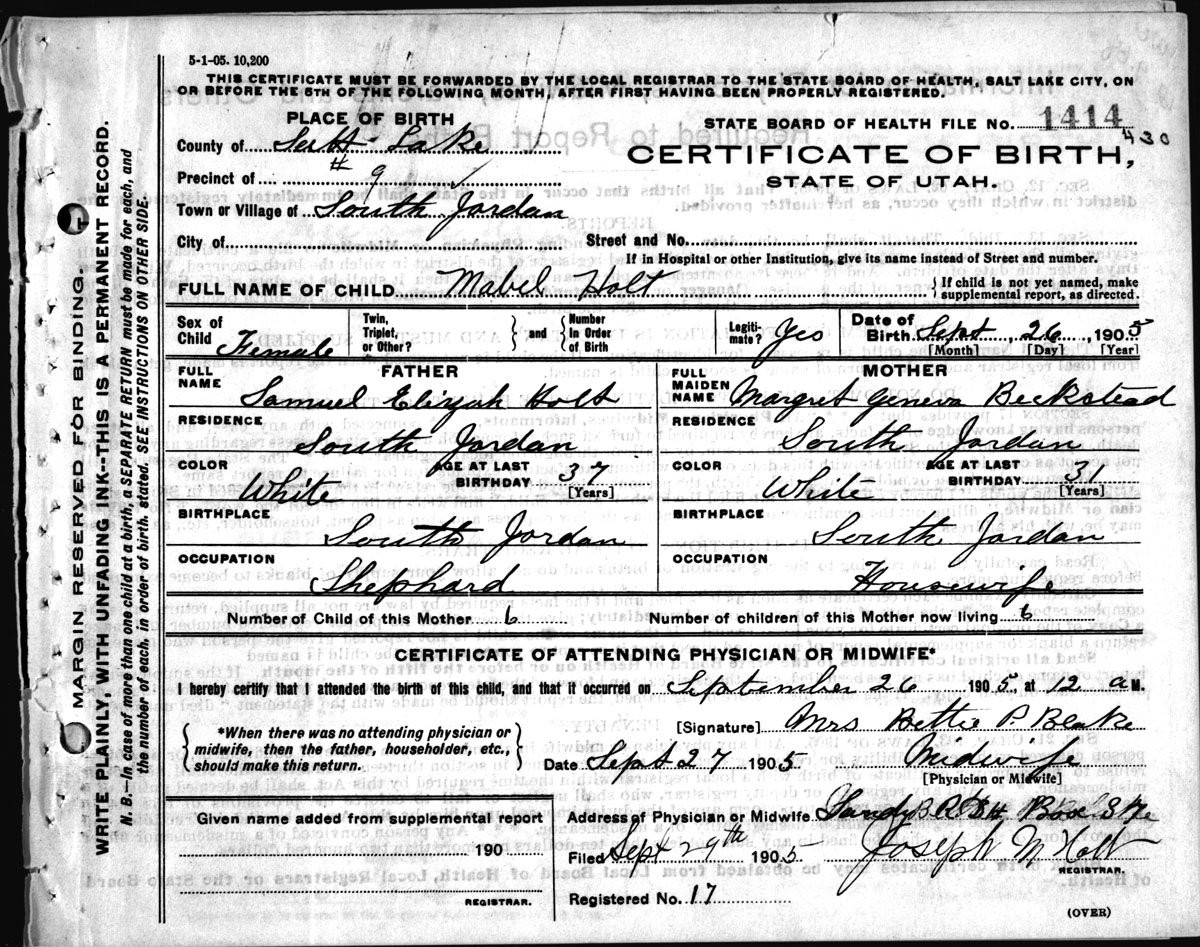 5-1-05. 10,200
THIS CERTIFICATE MUST BE FORWARDED BY THE LOCAL REGISTRAR TO THE STATE BOARD OF HEALTH, SALT LAKE CITY, ON
OR BEFORE THE 5TH OF THE FOLLOWING MONTH, AFTER FIRST HAVING BEEN PROPERLY REGISTERED.
PLACE OF BIRTH
STATE BOARD OF HEALTH FILE No. 1414
430
County of Salt Lake
CERTIFICATE OF BIRTH,
Precinct of # 9
STATE OF UTAH.
Town or Village of South Jordan
City of Street and No.
If in Hospital or other Institution, give its name instead of Street and number.
FULL NAME OF CHILD Mabel Holt { If child is not yet named, make supplemental report, as directed.
Sex of Child Female
Twin, Triplet, or Other? } and { Number In Order of Birth
Legitimate? Yes
Date of Birth Sept 26 1905
[Month] [Day] [Year]
FATHER
FULL NAME Samuel Elizjah Holt
RESIDENCE South Jordan
COLOR White AGE AT LAST BIRTHDAY 37 [Years]
BIRTHPLACE South Jordan
OCCUPATION Shephard
MOTHER
FULL MAIDEN NAME Margret Geneva Beckstead
RESIDENCE South Jordan
COLOR White AGE AT LAST BIRTHDAY 31 [Years]
BIRTHPLACE South Jordan
OCCUPATION Housewife
Number of Child of this Mother 6 Number of children of this Mother now living 6
CERTIFICATE OF ATTENDING PHYSICIAN OR MIDWIFE*
I hereby certify that I attended the birth of this child, and that it occurred on September 26 1905, at 12 a M.
{ *When there was no attending physician or midwife, then the father, householder, etc., should make this return. }
[Signature] Mrs Bettie P. Blake
Date Sept 27 1905 Midwife
[Physician or Midwife]
Given name added from supplemental report
190
REGISTRAR.
Address of Physician or Midwife Sandy Box
Filed Sept 29th 1905 Joseph M Holt
REGISTRAR.
Registered No. 17
(OVER)
MARGIN RESERVED FOR BINDING.
WRITE PLAINLY, WITH UNFADING INK--THIS IS A PERMANENT RECORD.
N. B.—In case of more than one child at a birth, a SEPARATE RETURN must be made for each, and
the number of each, in order of birth, stated. SEE INSTRUCTIONS ON OTHER SIDE.